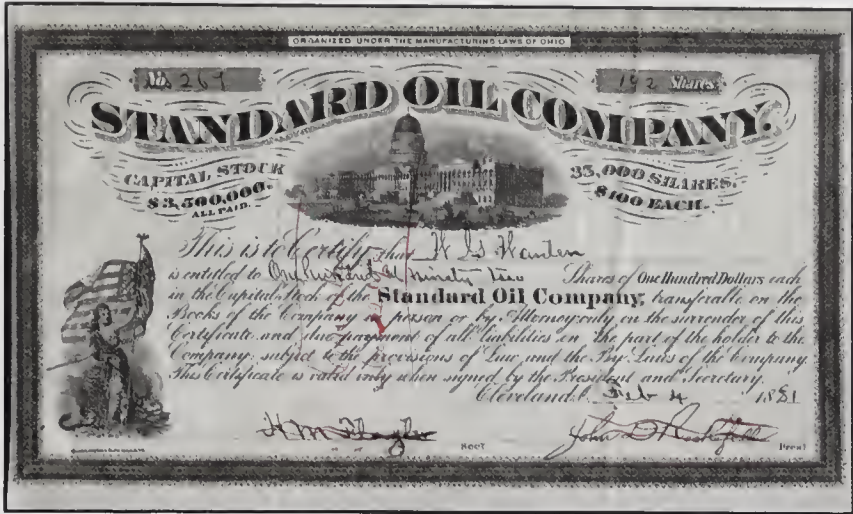 ORGANIZED UNDER THE MANUFACTURING LAWS OF OHIO
No 267
192 Shares
STANDARD OIL COMPANY.
CAPITAL STOCK
$3,500,000.
ALL PAID.
35,000 SHARES.
$100 EACH.
This is to Certify that W G Warden
is entitled to One hundred & ninety two Shares of One Hundred Dollars each
in the Capital Stock of the Standard Oil Company, transferable on the
Books of the Company in person or by Attorney only on the surrender of this
Certificate and also payment of all liabilities on the part of the holder to the
Company, subject to the provisions of Law and the By-Laws of the Company.
This Certificate is valid only when signed by the President and Secretary.
Cleveland, O. Feb 4 1881
H M Flagler Secy
John D Rockefeller Prest